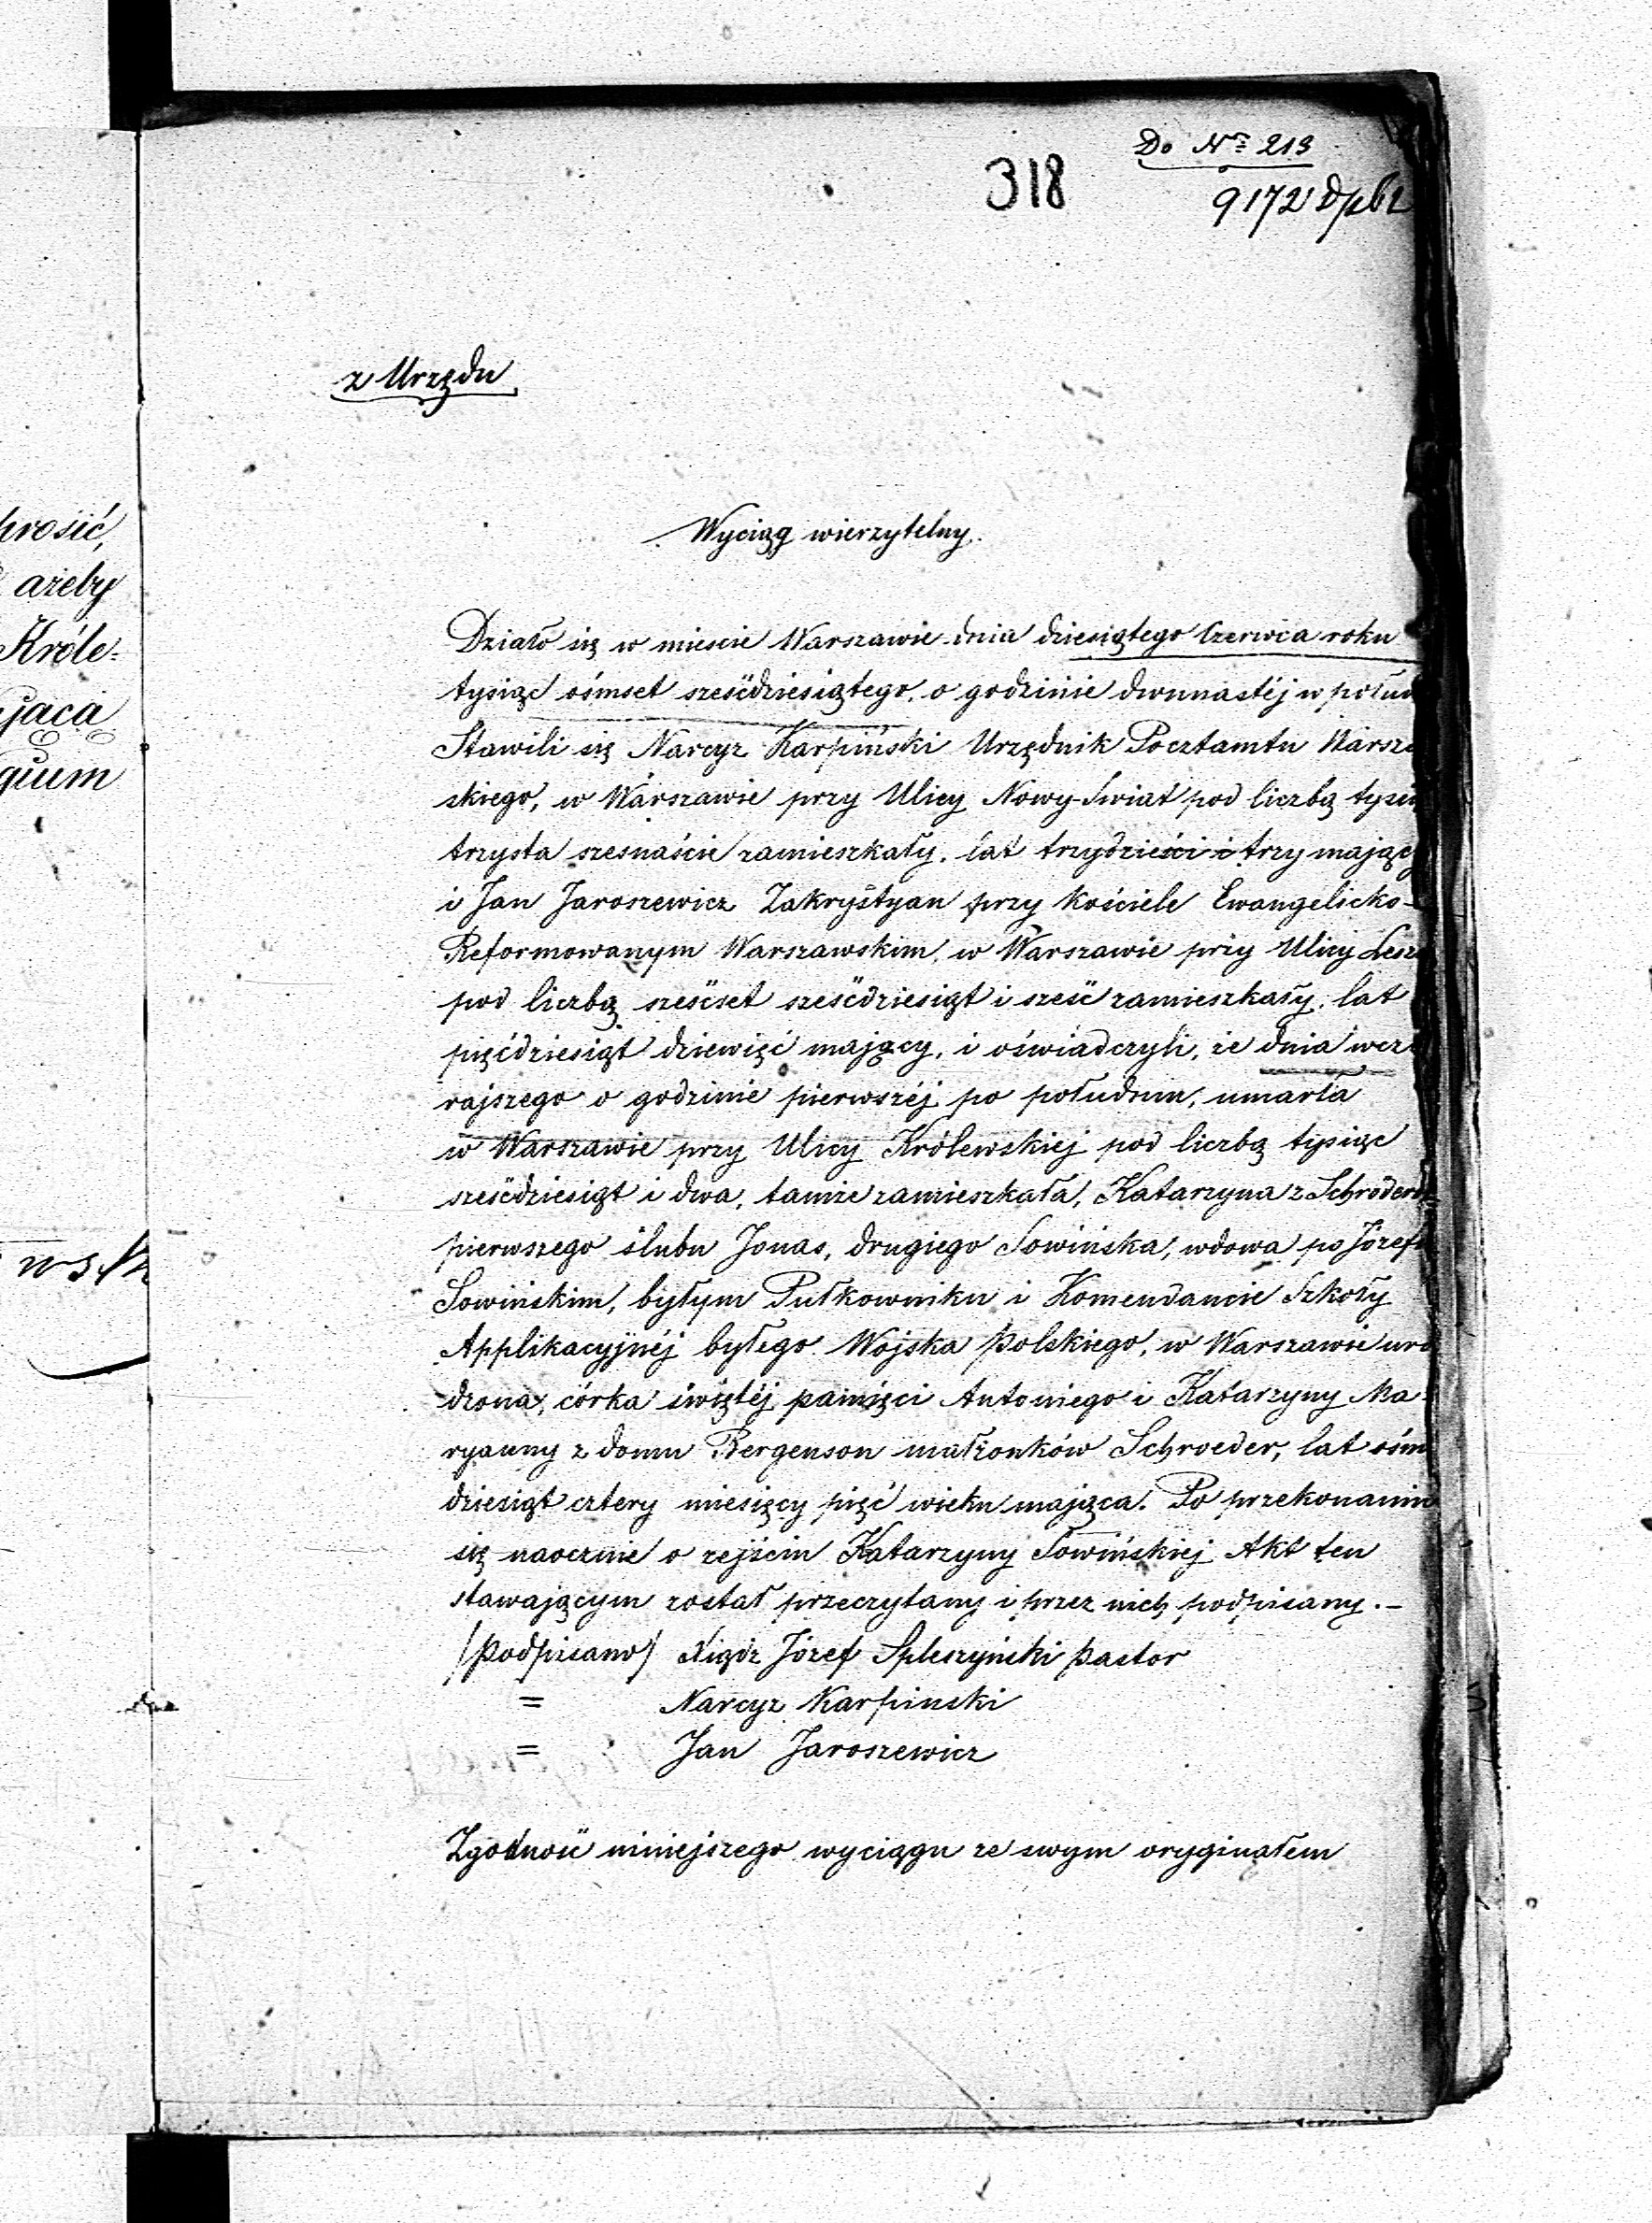 Do Nr 213
318
9172
z Urzędu
Wyciąg wierzytelny.
Działo się w mieście Warszawie dnia dziesiątego Czerwca roku
tysiąc ośmset sześćdziesiątego, o godzinie dwunastéj w połud
Stawili się Narcyz Karpiński Urzędnik Pocztamtu Warsza
skiego, w Warszawie przy Ulicy Nowy-Świat pod liczbą tysią
trzysta szesnaście zamieszkały, lat trzydzieści i trzy mający
i Jan Jaroszewicz Zakrystyan przy kościele Ewangelicko-
Reformowanym Warszawskim, w Warszawie przy Ulicy Lesz
pod liczbą sześćset sześćdziesiąt i sześć zamieszkały, lat
pięćdziesiąt dziewięć mający, i oświadczyli, że dnia wczo
rajszego o godzinie pierwszéj po południu, umarła
w Warszawie przy Ulicy Królewskiej pod liczbą tysiąc
sześćdziesiąt i dwa, tamże zamieszkała, Katarzyna z Schröder
pierwszego ślubu Jonas, drugiego Sowińska, wdowa po Józef
Sowińskim, byłym Pułkowniku i Komendancie Szkoły
Applikacyjnéj byłego Wojska Polskiego, w Warszawie uro
dzona, córka świętéj pamięci Antoniego i Katarzyny Ma-
ryanny z domu Bergenson małżonków Schroeder, lat ośm
dziesiąt cztery miesięcy pięć wieku mająca. Po przekonaniu
się naocznie o zejściu Katarzyny Sowińskiej Akt ten
stawającym został przeczytany i przez nich podpisany.-
/Podpisano/ Xiądz Józef Spleszyński Pastor
= Narcyz Karpinski
= Jan Jaroszewicz
Zgodność niniejszego wyciągu ze swym oryginałem
prosić,
ażeby
Króle-
jąca
gium